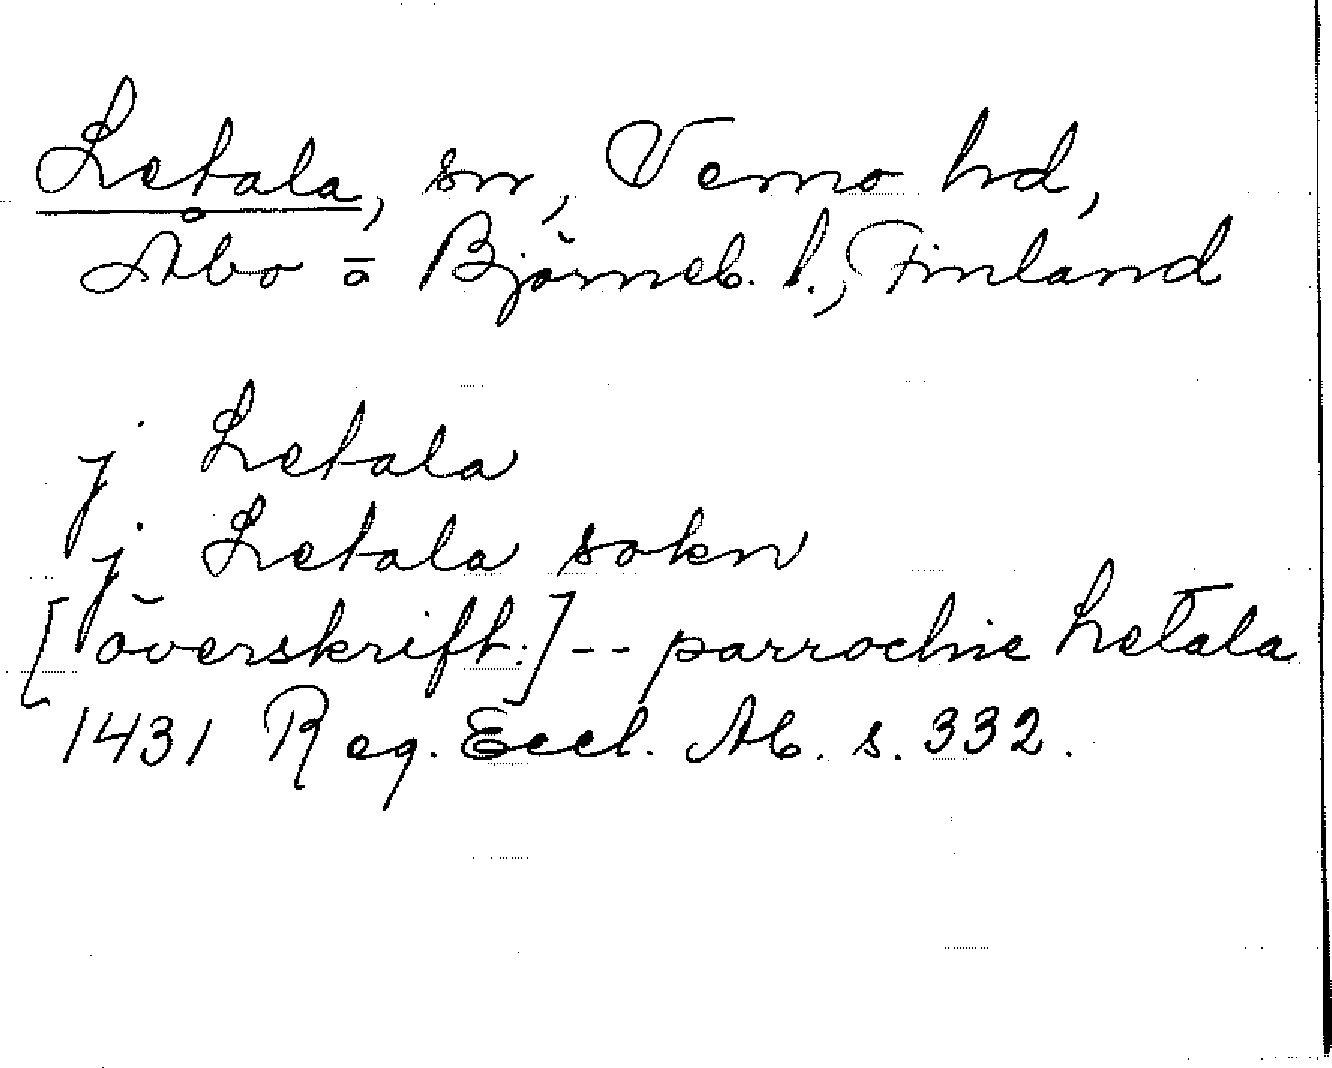 Letala, sn, Vemo hd,
Åbo o. Björneb. l., Finland
j Letala
j Letala sokn
[överskrift:] -- parrochie Letala
1431 Reg. Eccl. Ab. s. 332.